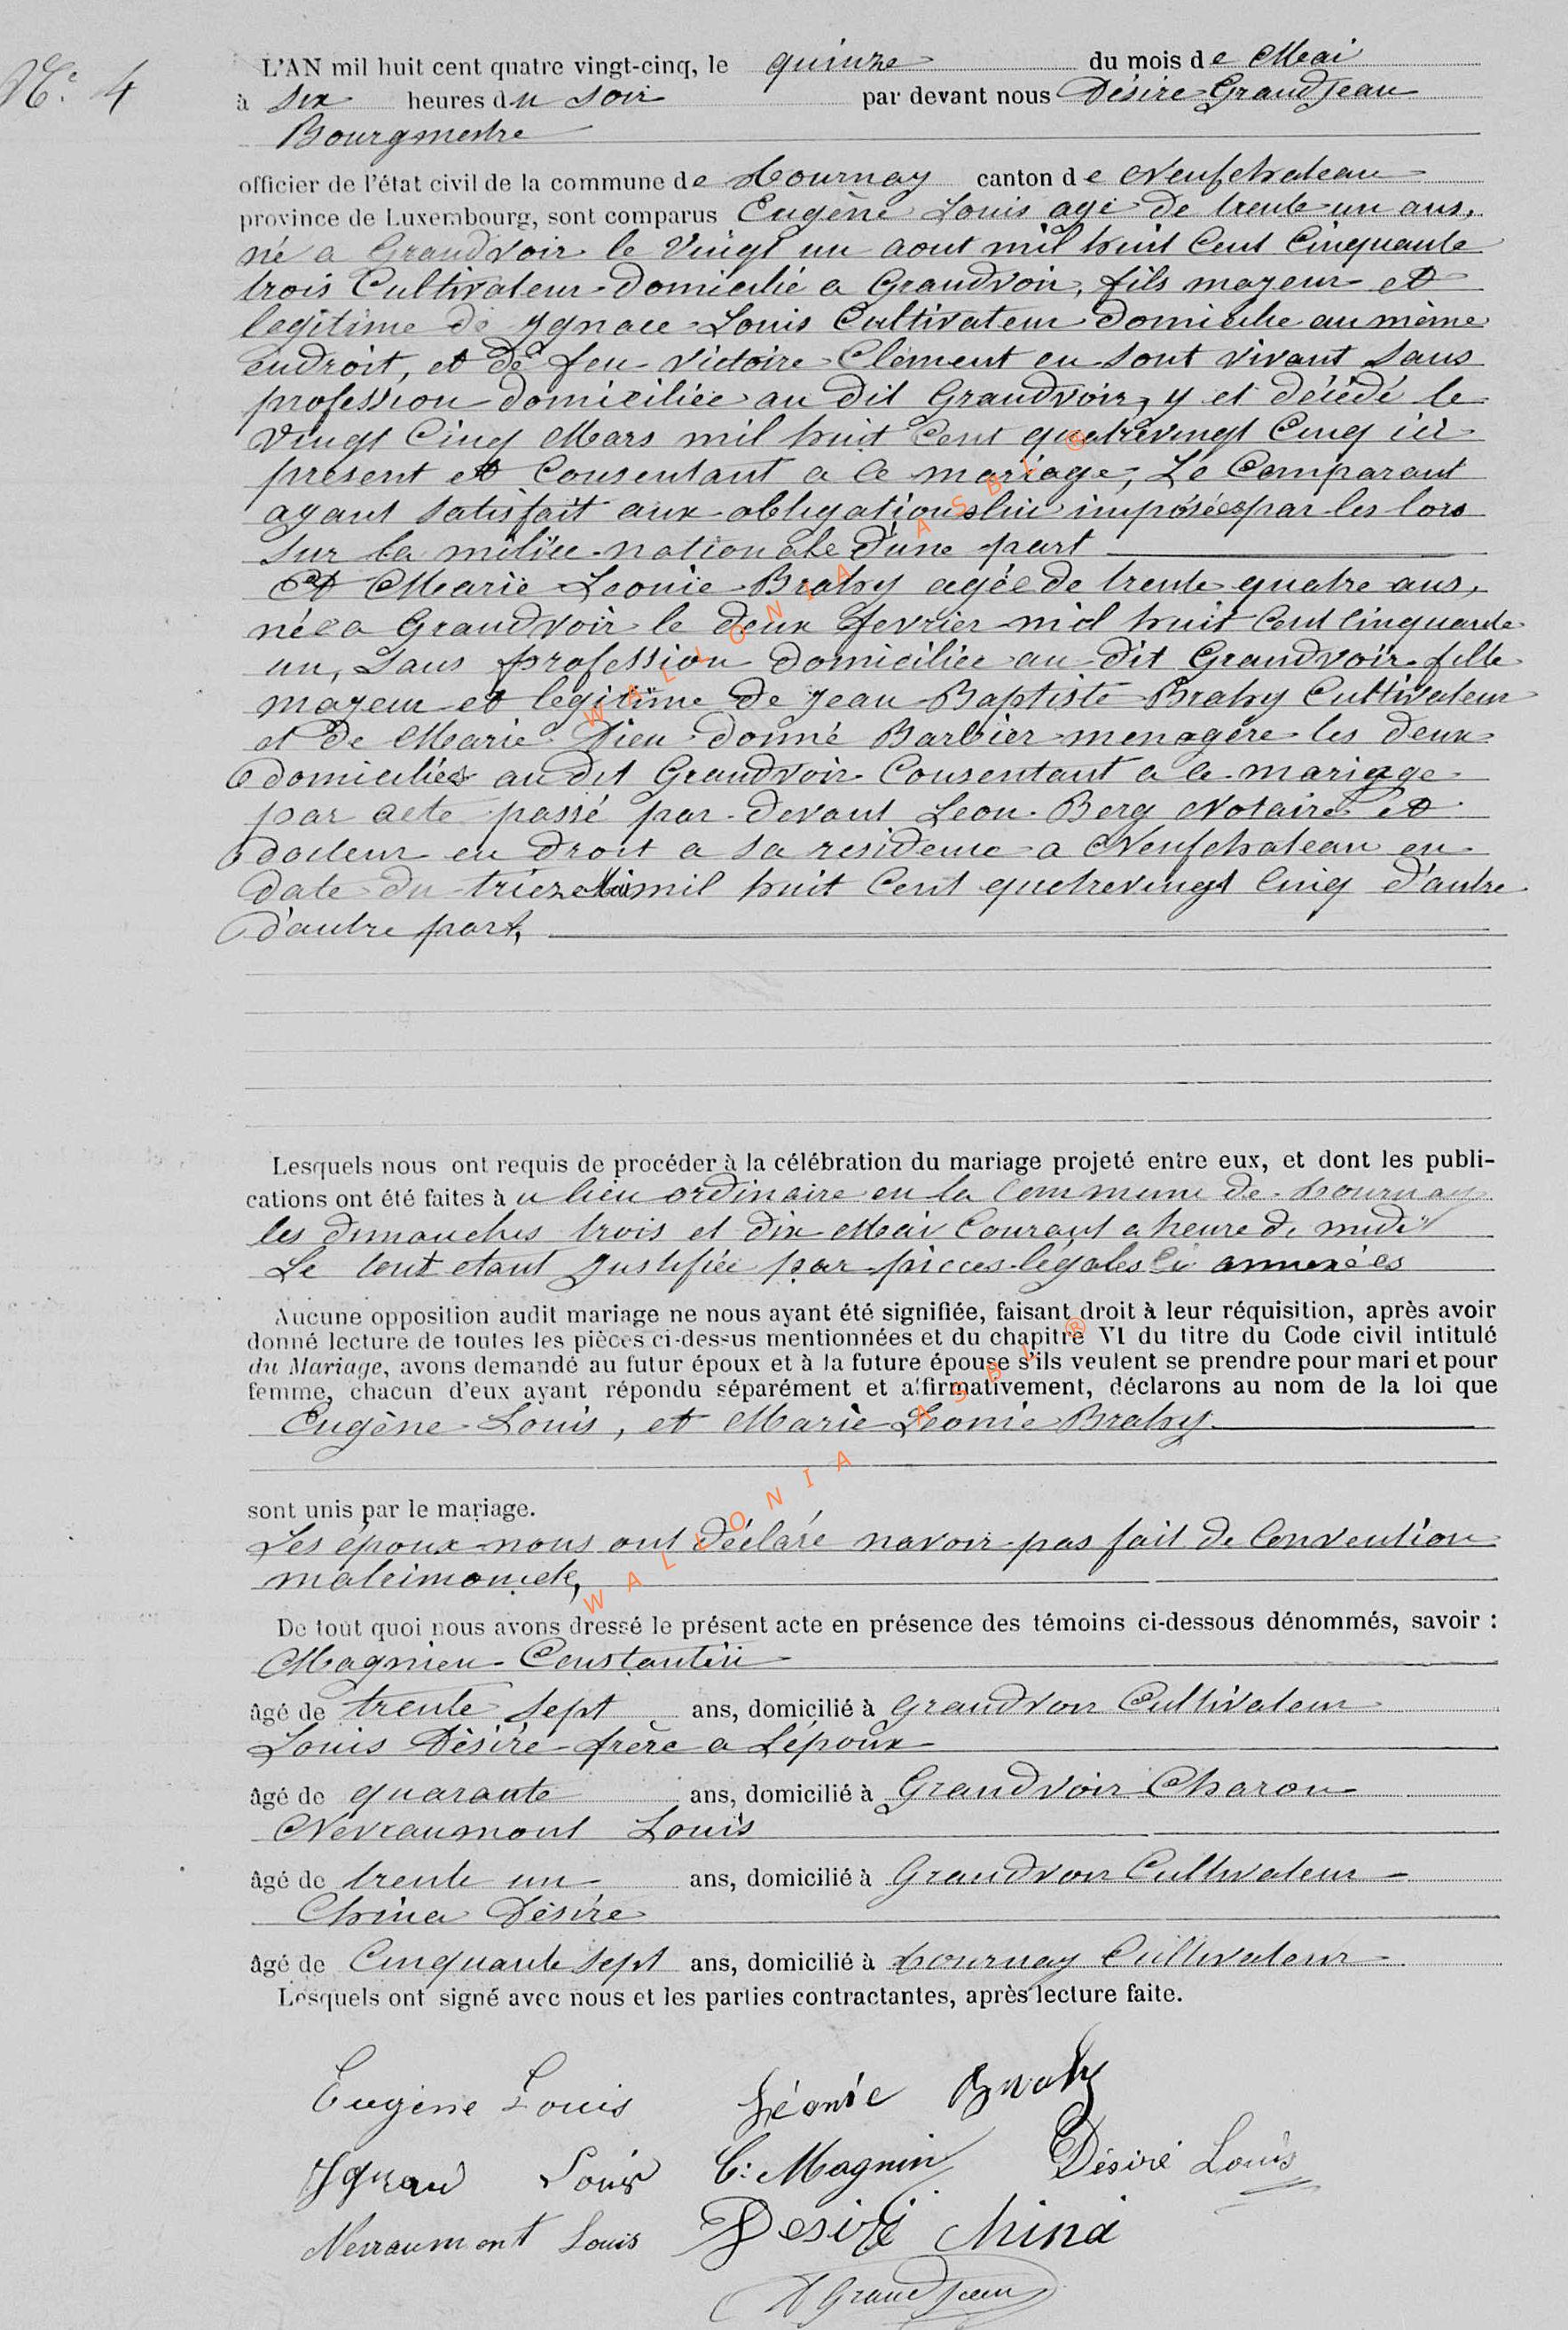 N° 4
L'AN mil huit cent quatre vingt-cinq, le quinze du mois de Mai
à six heures du soir par devant nous Désiré Grandjean
Bourgmestre
officier de l'état civil de la commune de Tournay canton de Neufchateau
province de Luxembourg, sont comparus Eugène Louis agé de trente un ans,
né a Grandvoir le Vingt un aout mil huit Cent Cinquante
trois Cultivateur domicilié a Grandvoir, fils mageur et
legitime de Ygnace Louis Cultivateur domicilie au même
endroit, et de feu Victoire Clément en sont vivant sans
profession domiciliée au dit Grandvoir, y et décédé le
Vingt Cinq Mars mil huit Cent quatrevingt Cinq ici
présent et Consentant a ce mariage, Le Comparant
ayant satisfait aux obligations lui imposées par les lois
sur la milice nationale d'une part
Et Marie Leonie Brahy agée de trente quatre ans,
née a Grandvoir le deux fevrier mil huit Cent Cinquante
un, sans profession domiciliée au dit Grandvoir fille
mageur et légitime de Jean Baptiste Brahy Cultivateur
et de Marie Dieu donné Barbier menagère les deux
domiciliés au dit Grandvoir Consentant a ce mariage
par acte passé par devant Leon Berg Notaire et
docteur en droit a sa residence a Neufchateau en
date du trieze Mai mil huit Cent quetrevingt Cinq d'autre
d'autre part,
Lesquels nous ont requis de procéder à la célébration du mariage projeté entre eux, et dont les publi-
cations ont été faites à u lieu ordinaire en la Commune de Tournay
les dimanches trois et dix Mai Courant a heure de midi
Le tout etant justifiée par pieces légales ci annexées
Aucune opposition audit mariage ne nous ayant été signifiée, faisant droit à leur réquisition, après avoir
donné lecture de toutes les pièces ci-dessus mentionnées et du chapitre VI du titre du Code civil intitulé
du Mariage, avons demandé au futur époux et à la future épouse s'ils veulent se prendre pour mari et pour
femme, chacun d'eux ayant répondu séparément et affirmativement, déclarons au nom de la loi que
Eugène Louis, et Marie Leonie Brahy
sont unis par le mariage.
Les époux nous ont déclaré navoir pas fait de Convention
matrimoniale,
De tout quoi nous avons dressé le présent acte en présence des témoins ci-dessous dénommés, savoir :
Magnien Constantin
âgé de trente sept ans, domicilié à Grandvoir Cultivateur
Louis Désiré frère a L'époux
âgé de quarante ans, domicilié à Grandvoir Charon
Nevraumont Louis
âgé de trente un ans, domicilié à Grandvoir Cultivateur
China Désiré
âgé de Cinquante sept ans, domicilié à Tournay Cultivateur
Lesquels ont signé avec nous et les parties contractantes, après lecture faite.
Eugène Louis Léonie Brahy
Louis C: Magnin Désiré Louis
Nevraumont Louis Désiré China
Grandjean
WALLONIA ASBL ®
WALLONIA ASBL ®